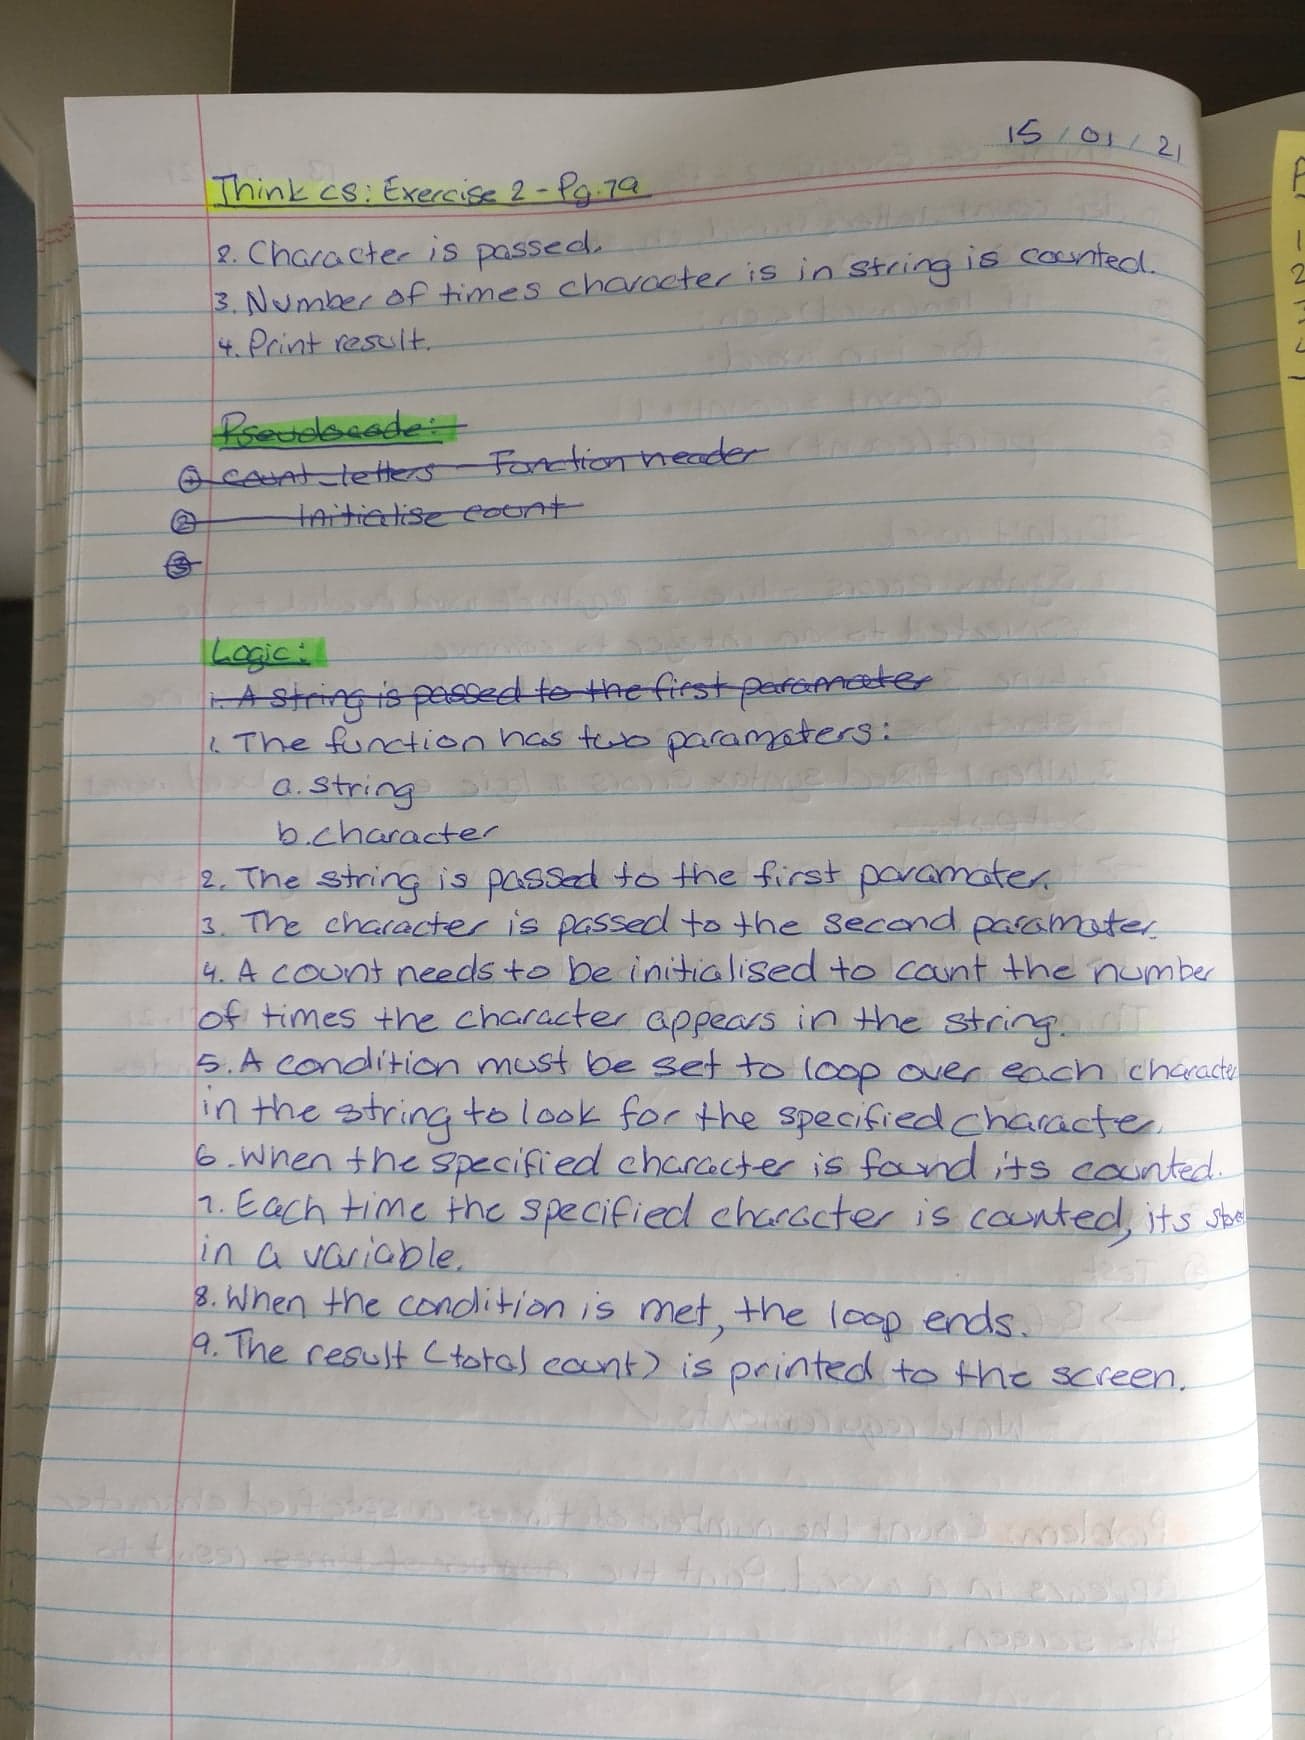 15/01/21
Think CS: Exercise 2 - Pg. 79
2. Character is passed.
3. Number of times character is in string is counted.
4. Print result.
Pseudocode:
1 count_letters - Function header
2 Initialise count
3
Logic:
1. A string is passed to the first paramater
1. The function has two paramaters:
a. string
b. character
2. The string is passed to the first paramater.
3. The character is passed to the second paramater.
4. A count needs to be initialised to count the number
of times the character appears in the string.
5. A condition must be set to loop over each character
in the string to look for the specified character.
6. When the specified character is found its counted.
7. Each time the specified character is counted, its
in a variable.
8. When the condition is met, the loop ends.
9. The result (total count) is printed to the screen.